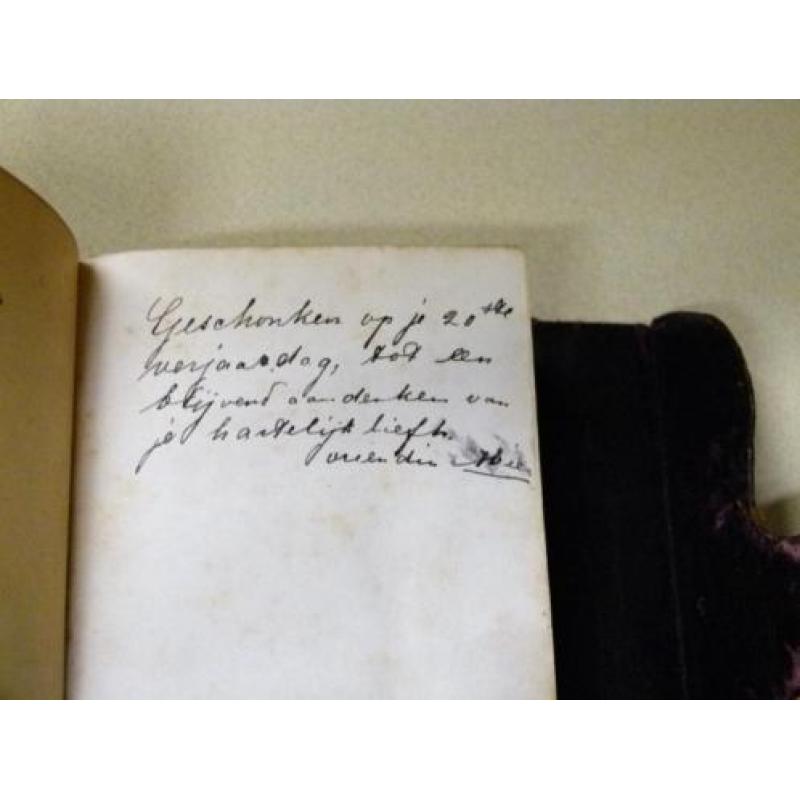 Geschonken op je 20ste
verjaardag, tot een
blijvend aandenken van
je hartelijk liefh.
vriendin